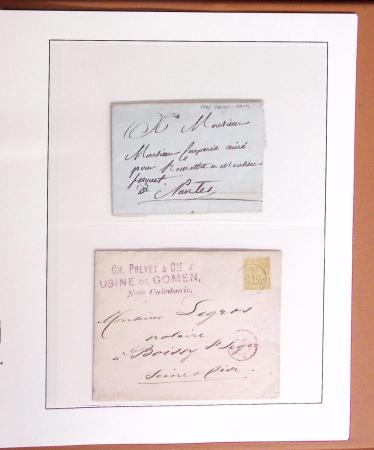 A Monsieur
Monsieur
pour Remettre a Monsieur
a Nantes
CH. PREVET & CIE
USINE DE GOMEN,
Nlle Calédonie.
25
Monsieur Legros
notaire
à Boissy St Léger
Seine & Oise